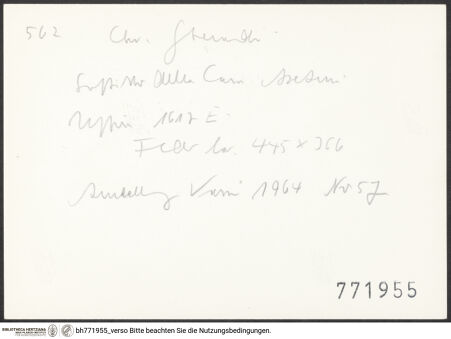 562 Chr. Gherardi
Soffitto della Casa
Uffizi 1617 E.
Feder 445 x 366
1964 Nr 57
771955
BIBLIOTHECA HERTZIANA bh771955_verso Bitte beachten Sie die Nutzungsbedingungen.